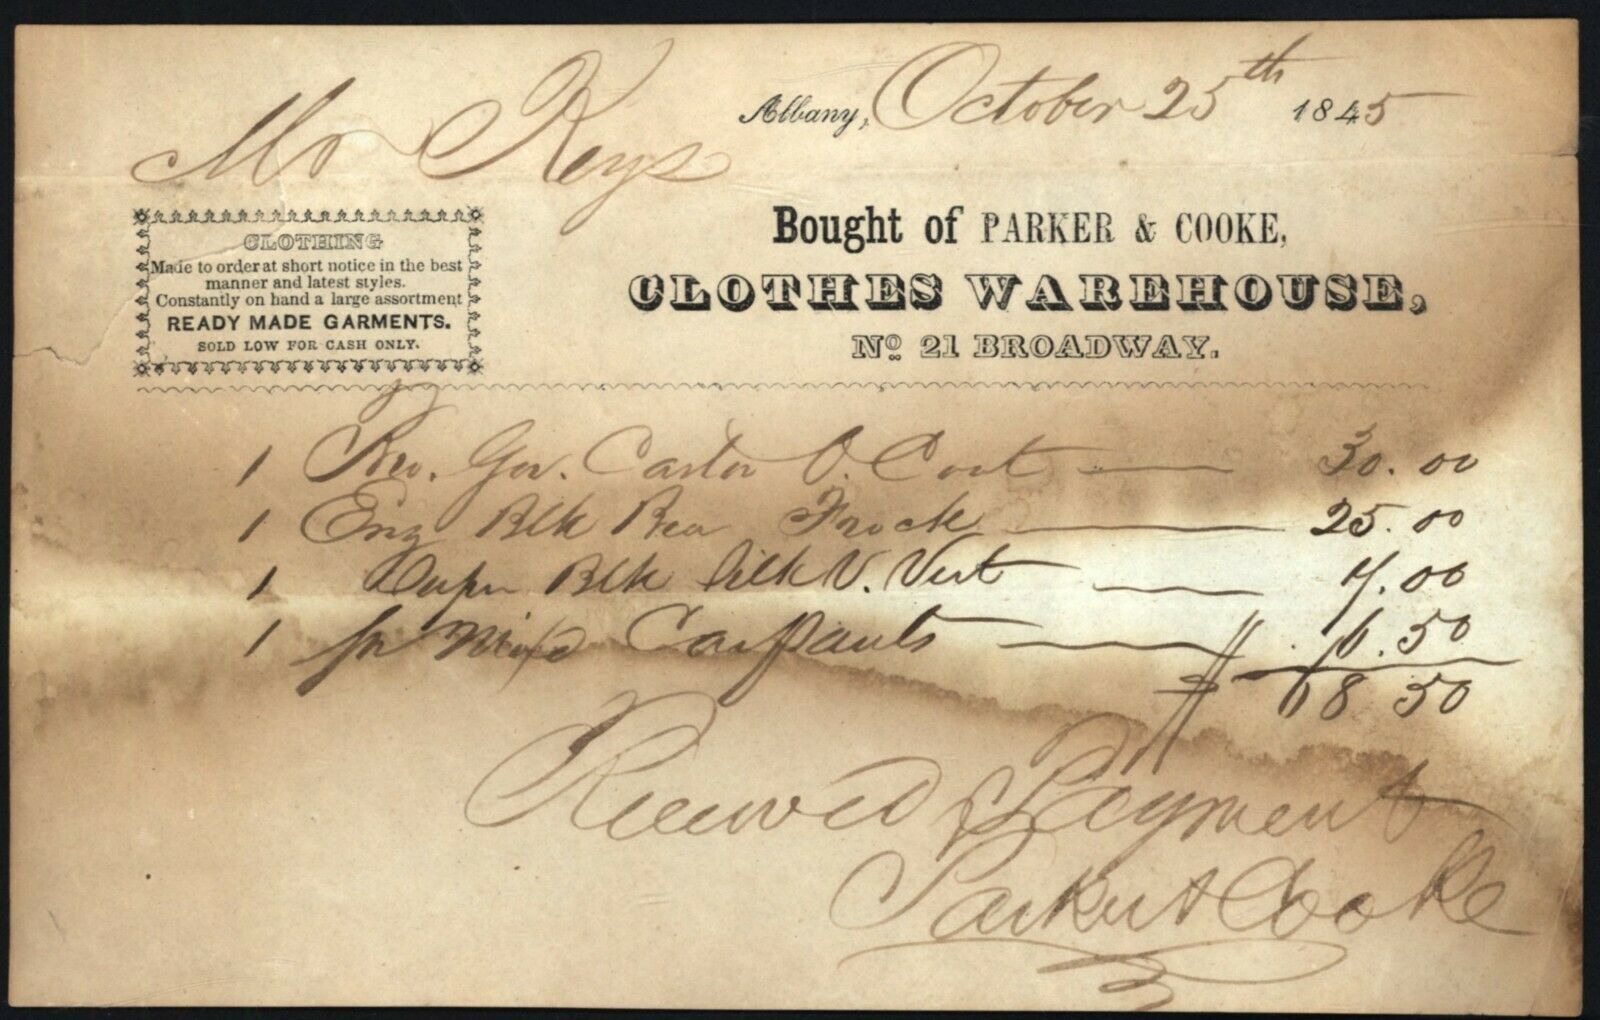 Albany, October 25th 1845
Mr Keys
CLOTHING
Made to order at short notice in the best
manner and latest styles.
Constantly on hand a large assortment
READY MADE GARMENTS.
SOLD LOW FOR CASH ONLY.
Bought of PARKER & COOKE,
CLOTHES WAREHOUSE,
No. 21 BROADWAY.
1 Castor O. Coat 30.00
1 Blk Frock 25.00
1 Super Blk Silk V. Vest 7.00
1 pr Mixd Pants 6.50
$ 68 50
Received Payment
Parker & Cooke